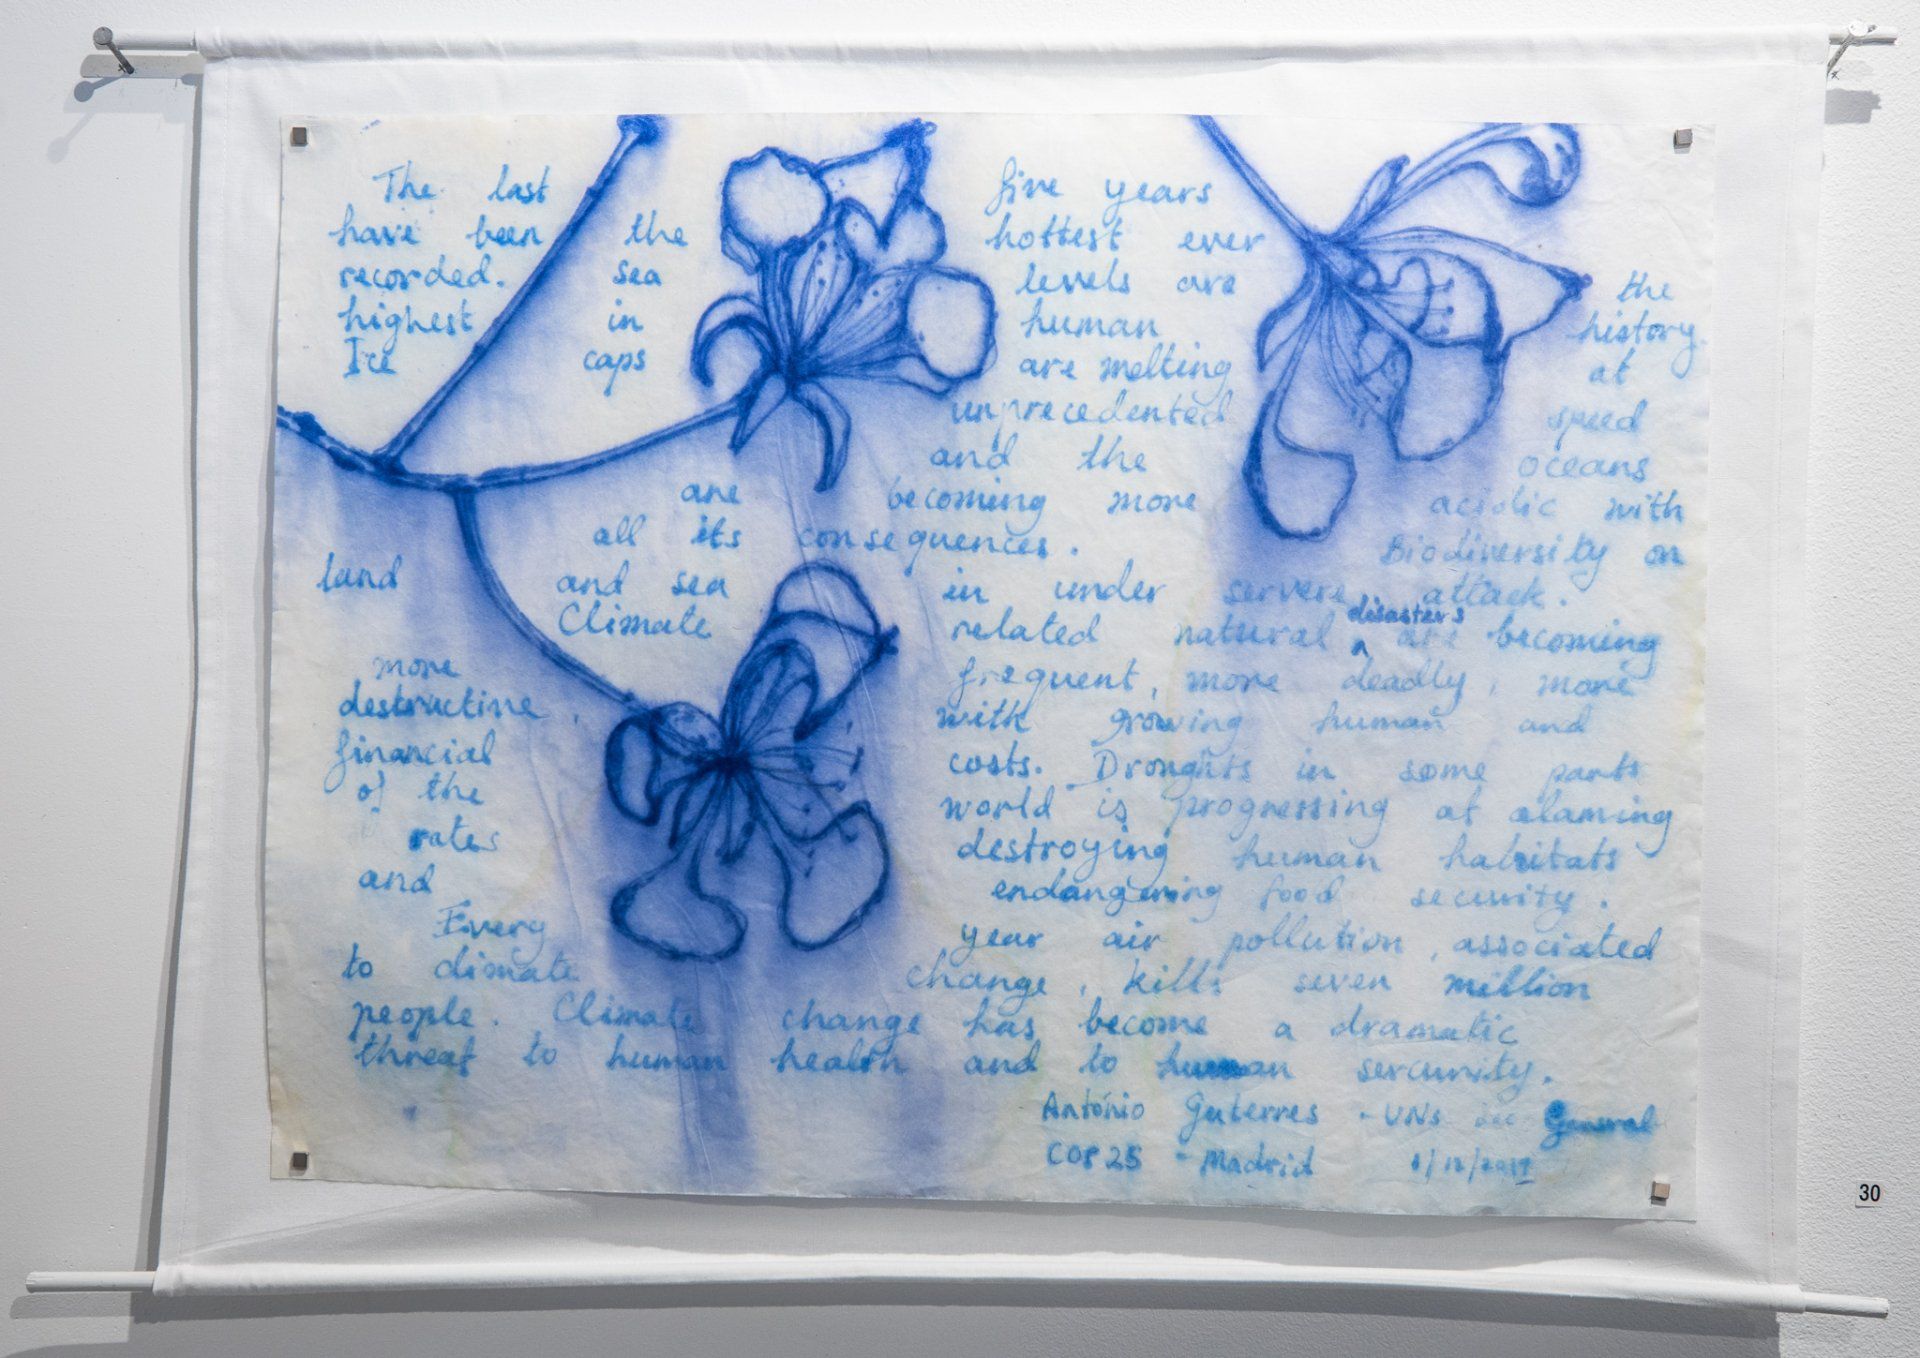 The last five years
have been the hottest ever
recorded. sea levels are the
highest in human history.
Ice caps are melting at
unprecedented speed
and the oceans
are becoming more acidic with
all its consequences. Biodiversity on
land and sea in under servere attack.
Climate related natural disasters are becoming
more frequent, more deadly, more
destructive, with growing human and
financial costs. Droughts in some parts
of the world is progressing at alaming
rates destroying human habitats
and endangering food security.
Every year air pollution, associated
to climate change, kills seven million
people. Climate change has become a dramatic
threat to human health and to human sercurity.
António Guterres - UNs sec General
COP25 - Madrid 1/12/2019
30